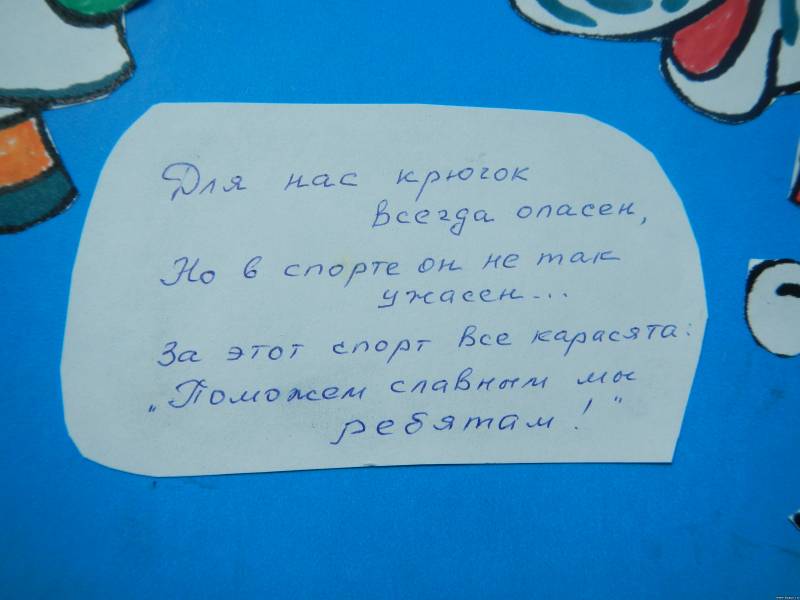 Для нас крючок
всегда опасен,
Но в спорте он не так
ужасен...
За этот спорт все карасята:
„Поможем славным мы
ребятам!"